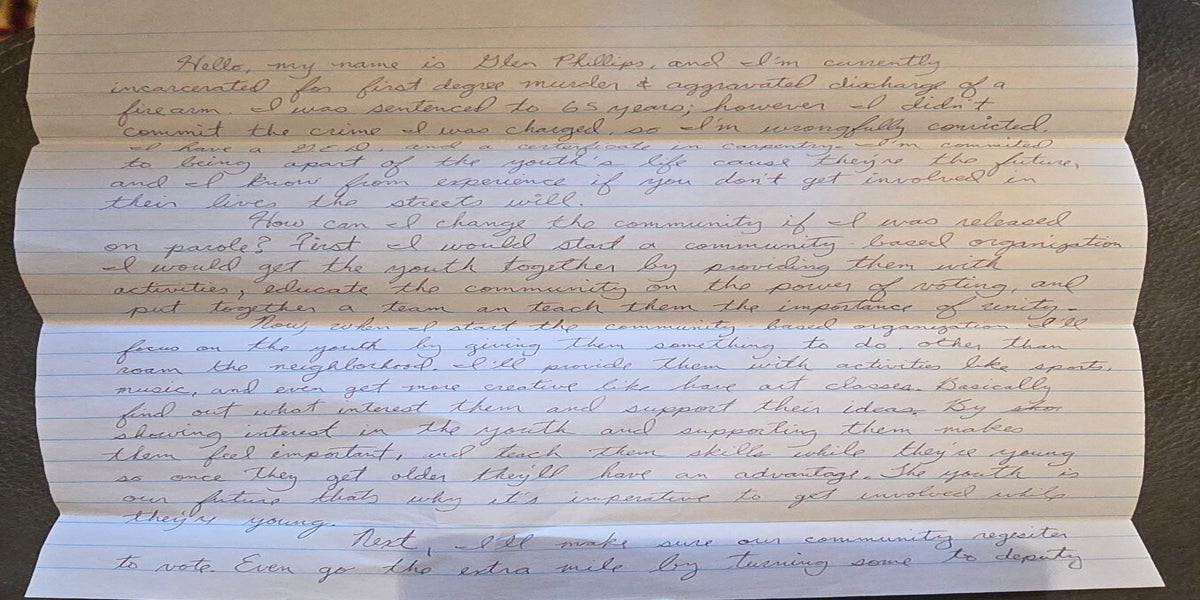 Hello, my name is Glen Phillips, and I'm currently
incarcerated for first degree murder & aggravated discharge of a
firearm. I was sentenced to 65 years; however I didn't
commit the crime I was charged, so I'm wrongfully convicted.
I have a G.E.D. and a certificate in carpentry. I'm commited
to being apart of the youth's life cause they're the future,
and I know from experience if you don't get involved in
their lives the streets will.
How can I change the community if I was released
on parole? First I would start a community-based organization.
I would get the youth together by providing them with
activities, educate the community on the power of voting, and
put together a team an teach them the importance of unity.
Now, when I start the community-based organization I'll
focus on the youth by giving them something to do, other than
roam the neighborhood. I'll provide them with activities like sports,
music, and even get more creative like have art classes. Basically
find out what interest them and support their ideas. By
showing interest in the youth and supporting them makes
them feel important, and teach them skills while they're young
so once they get older they'll have an advantage. The youth is
our future thats why it's imperative to get involved while
they're young.
Next, I'll make sure our community regesiter
to vote. Even go the extra mile by turning some to deputy